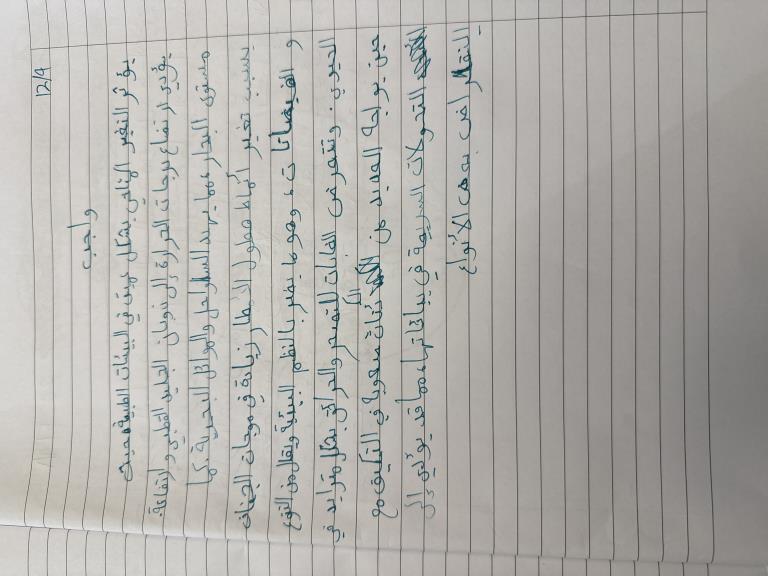 12/4
واجب
يؤثر التغير المناخي بشكل عميق في البيئات الطبيعية حيث
يؤدي ارتفاع درجات الحرارة إلى ذوبان الجليد القطبي وارتفاع
مستوى البحار مما يهدد السواحل والموائل البحرية. كما
يسبب تغير أنماط هطول الأمطار زيادة في موجات الجفاف
و الفيضانات، وهو ما يضر بالنظم البيئية ويقلل من التنوع
الحيوي. وتتعرض الغابات للتصحر والحرائق بشكل متزايد في
حين يواجه العديد من الكائنات صعوبة في التكيف مع
التحولات السريعة في بيئاتها، مما قد يؤدي إلى
انقراض بعض الأنواع